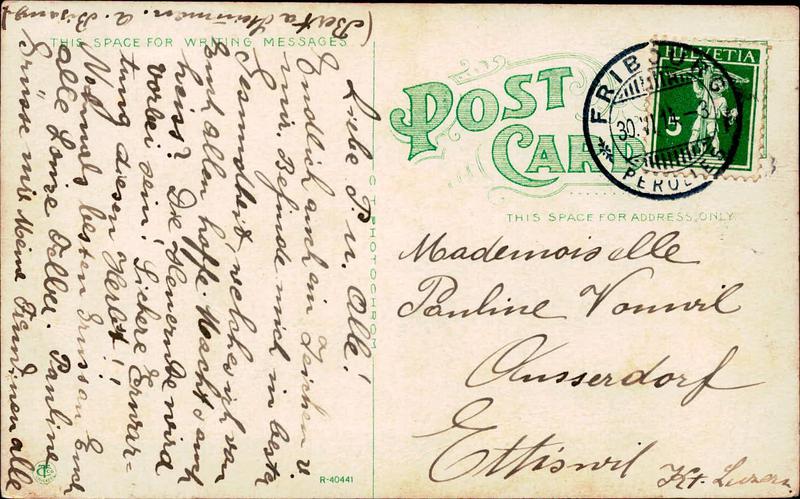 THIS SPACE FOR WRITING MESSAGES
Liebe P. u. Alle!
Endlich auch ein Zeichen v.
mir. Befinde mich in bester
Gesundheit, welches ich von
Euch Allen hoffe. Macht's auch
heiss? Die Heuernte wird
vorbei sein! Sichere Erwar-
tung diesen Herbst!!
Nochmals besten Grüssen Euch
alle Louise Felber. Pauline
Grüsse mir Meine Freundinen alle
(Berta
C T PHOTOCHROM
R-40441
POST
CARD
FRIBOURG
30.VI.14.-3
PEROLLES
HELVETIA
5
THIS SPACE FOR ADDRESS ONLY
Mademoiselle
Pauline Vonwil
Ausserdorf
Ettiswil
Kt. Luzern.